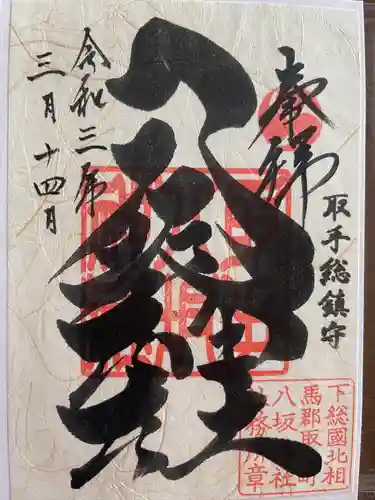 奉拝
取手総鎮守
令和三年
三月十四日
下総國北相
馬郡取手町
八坂神社
社務所章